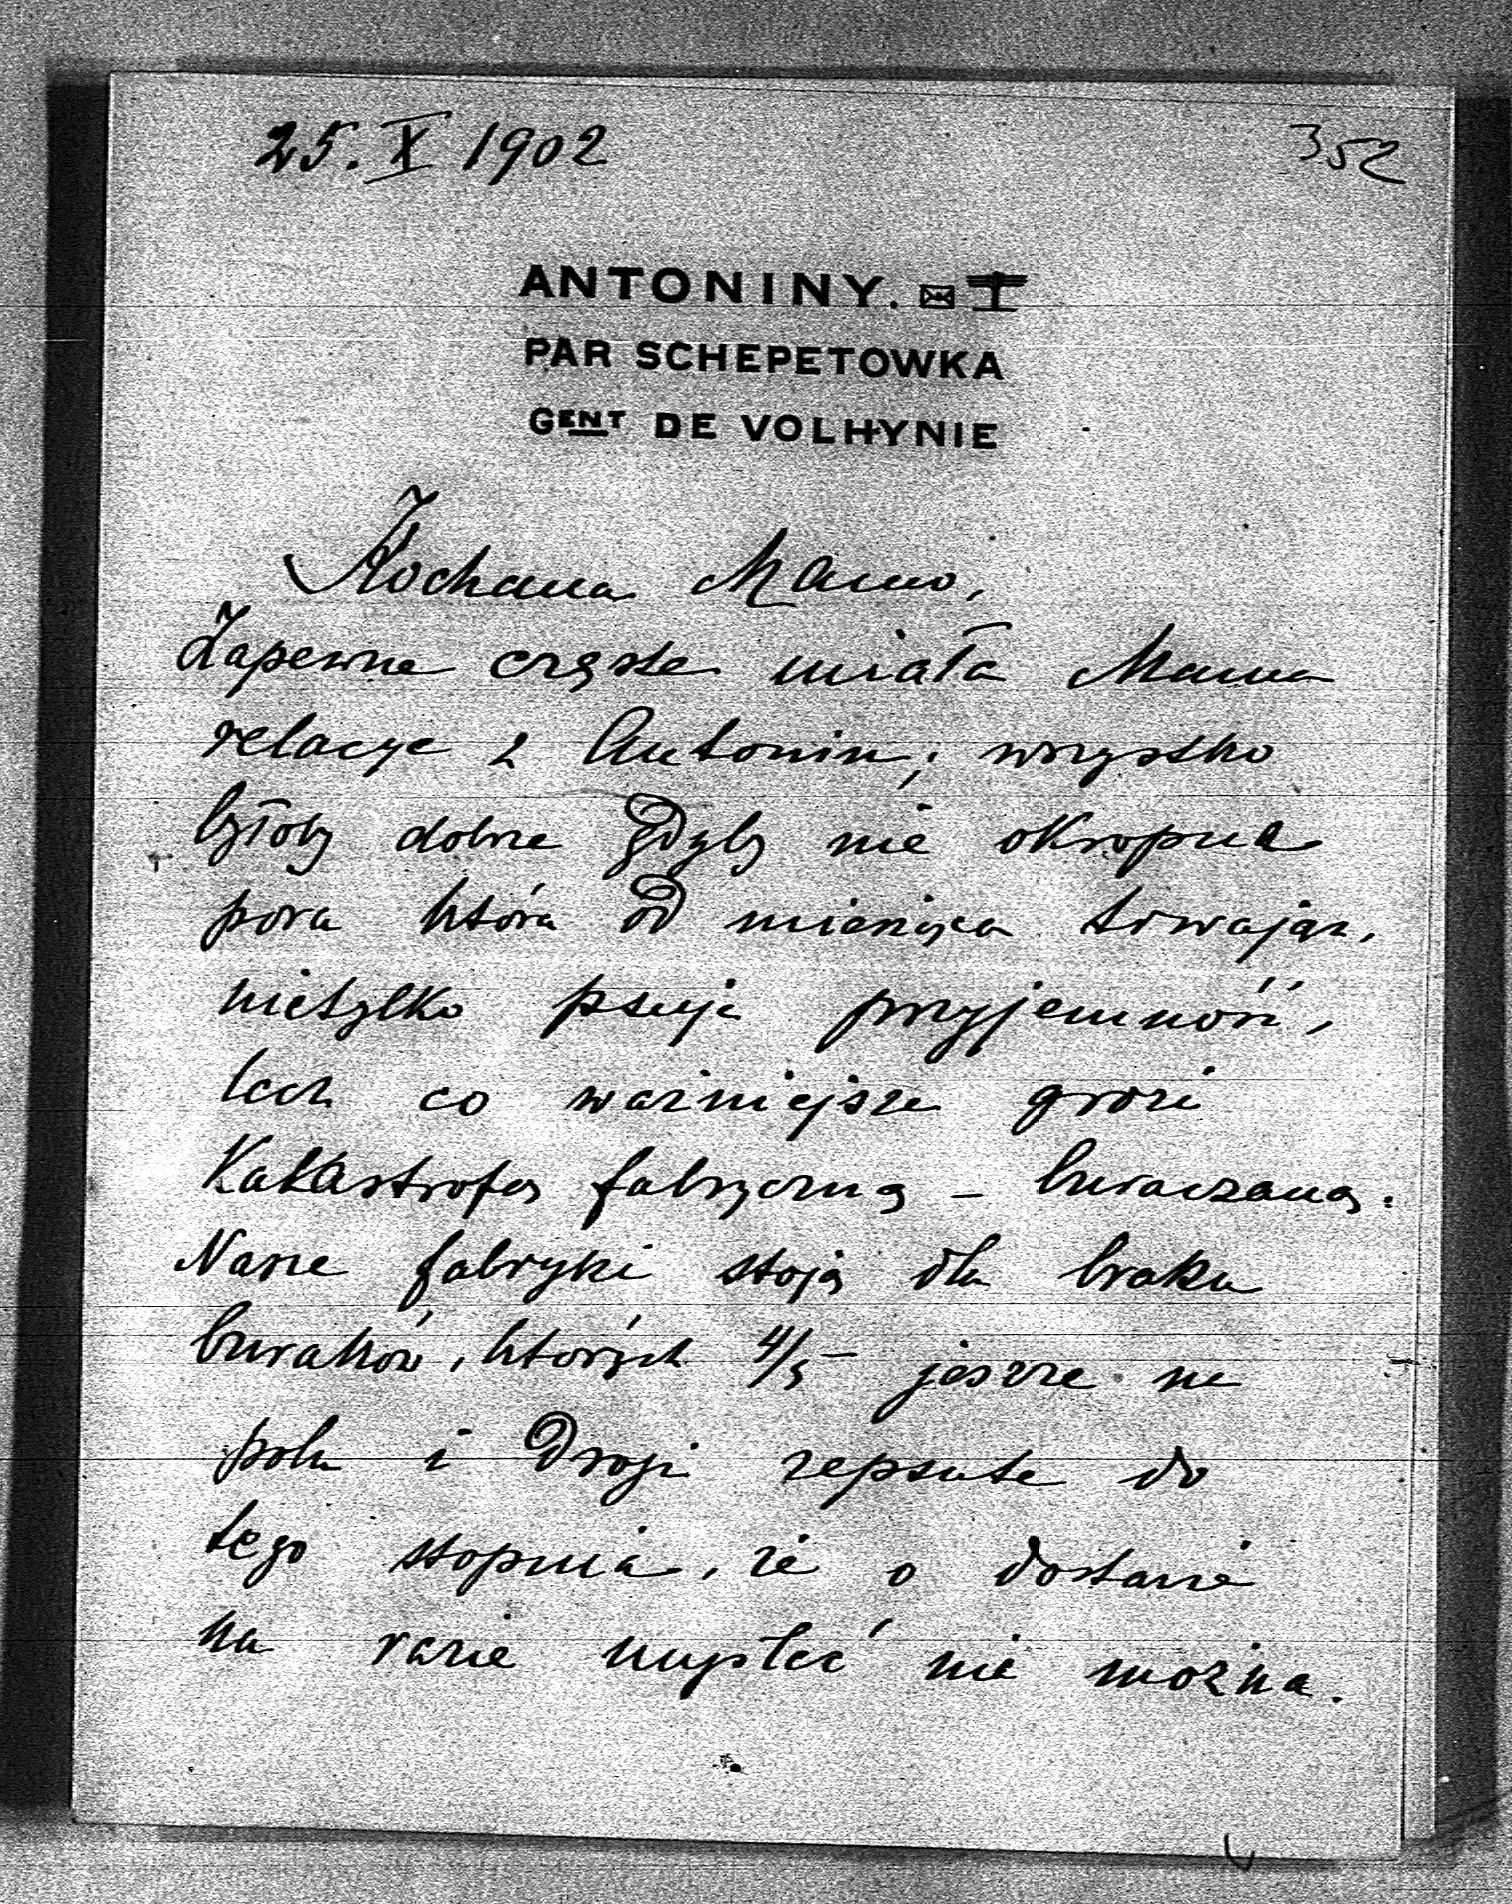 25. X 1902
352
ANTONINY.
PAR SCHEPETOWKA
GENT DE VOLHYNIE
Kochana Mamo,
Zapewne częste miała Mama
relacye z Antonin; wszystko
byłoby dobrze gdyby nie okropna
pora która od miesiąca trwając,
nietylko psuje przyjemność,
lecz co ważniejsze grozi
Katastrofą fabryczną – buraczaną.
Nasze fabryki stoją dla braku
buraków, których 4/5 jeszcze na
polu i drogi zepsute do
tego stopnia, że o dostawie
na razie myśleć nie można.